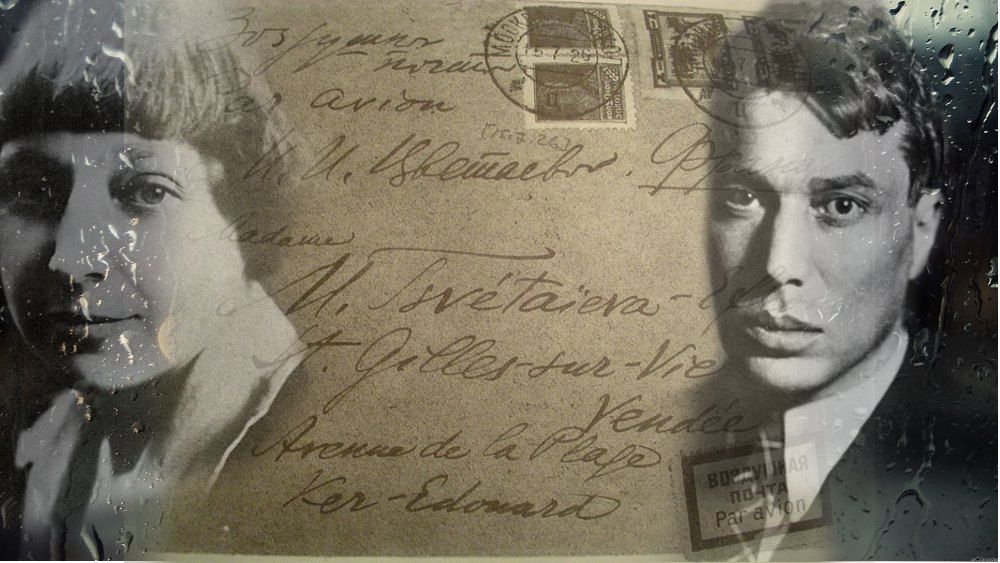 Воздушной
почтой
Par avion
МОСКВА
15.7.26
М. И. Цветаевой. Франция
(15.7.26)
Madame
M. Tsvétaïeva-
St. Gilles-sur-Vie
Vendée
Avenue de la Plage
Ker-Edouard
ВОЗДУШНАЯ
ПОЧТА
Par avion